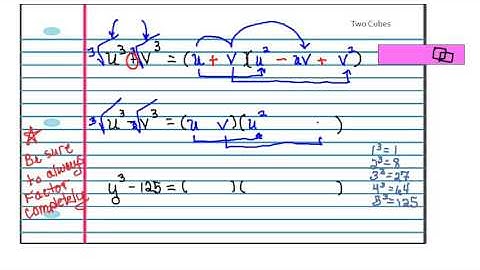 Two Cubes
∛u³ + ∛v³ = (u + v)(u² − uv + v²)
∛u³ − ∛v³ = (u v)(u² )
y³ − 125 = ( )( )
☆
Be sure
to always
Factor
completely
1³=1
2³=8
3³=27
4³=64
5³=125